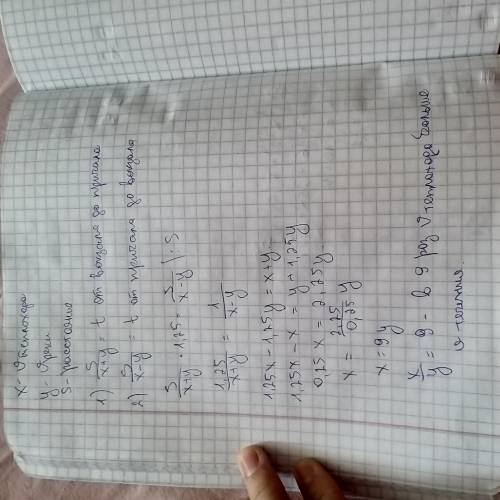 x - V теплохода
y - V реки
S - расстояние
1) S/(x+y) = t от вокзала до причала
2) S/(x-y) = t от причала до вокзала
S/(x+y) · 1,25 = S/(x-y) |:S
1,25/(x+y) = 1/(x-y)
1,25x - 1,25y = x+y
1,25x - x = y + 1,25y
0,25x = 2,25y
x = 2,25/0,25 y
x = 9y
x/y = 9 - в 9 раз V теплохода больше
V течения.